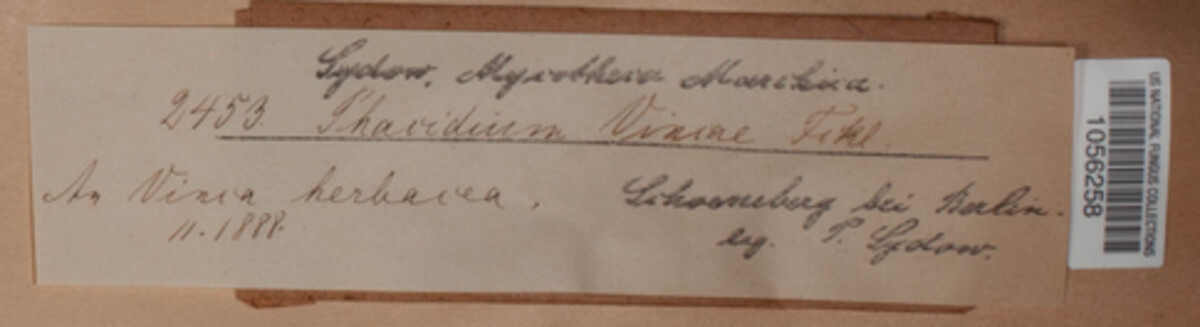 Sydow, Mycotheca Marchica.
2453. Phacidium Vincae Fckl.
An Vinca herbacea.
11.1888.
Schoeneberg bei Berlin.
leg. P. Sydow.
US NATIONAL FUNGUS COLLECTIONS
1056258